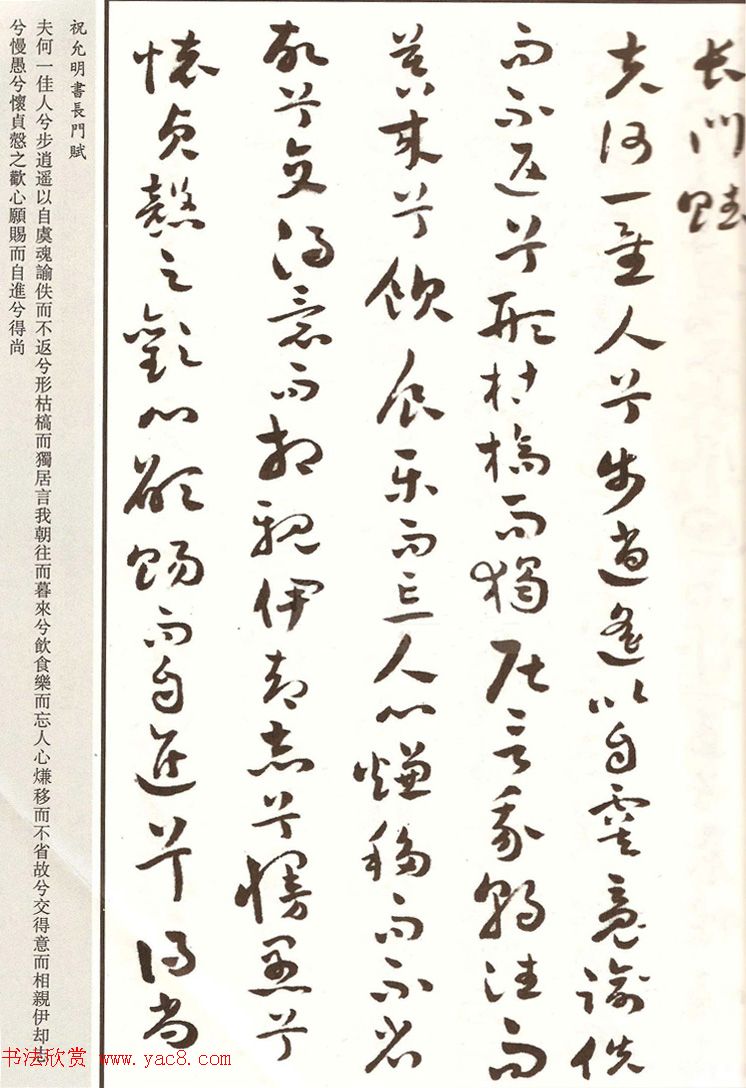 長門賦
夫何一佳人兮步逍遥以自虞魂諭佚
而不返兮形枯槁而獨居言我朝往而
暮來兮飲食樂而忘人心熑移而不省
故兮交得意而相親伊却志兮慢愚兮
懷貞愨之歡心願賜而自進兮得尚
祝允明書長門賦
夫何一佳人兮步逍遥以自虞魂諭佚而不返兮形枯槁而獨居言我朝往而暮來兮飲食樂而忘人心熑移而不省故兮交得意而相親伊却志
兮慢愚兮懷貞愨之歡心願賜而自進兮得尚
书法欣赏 www.yac8.com